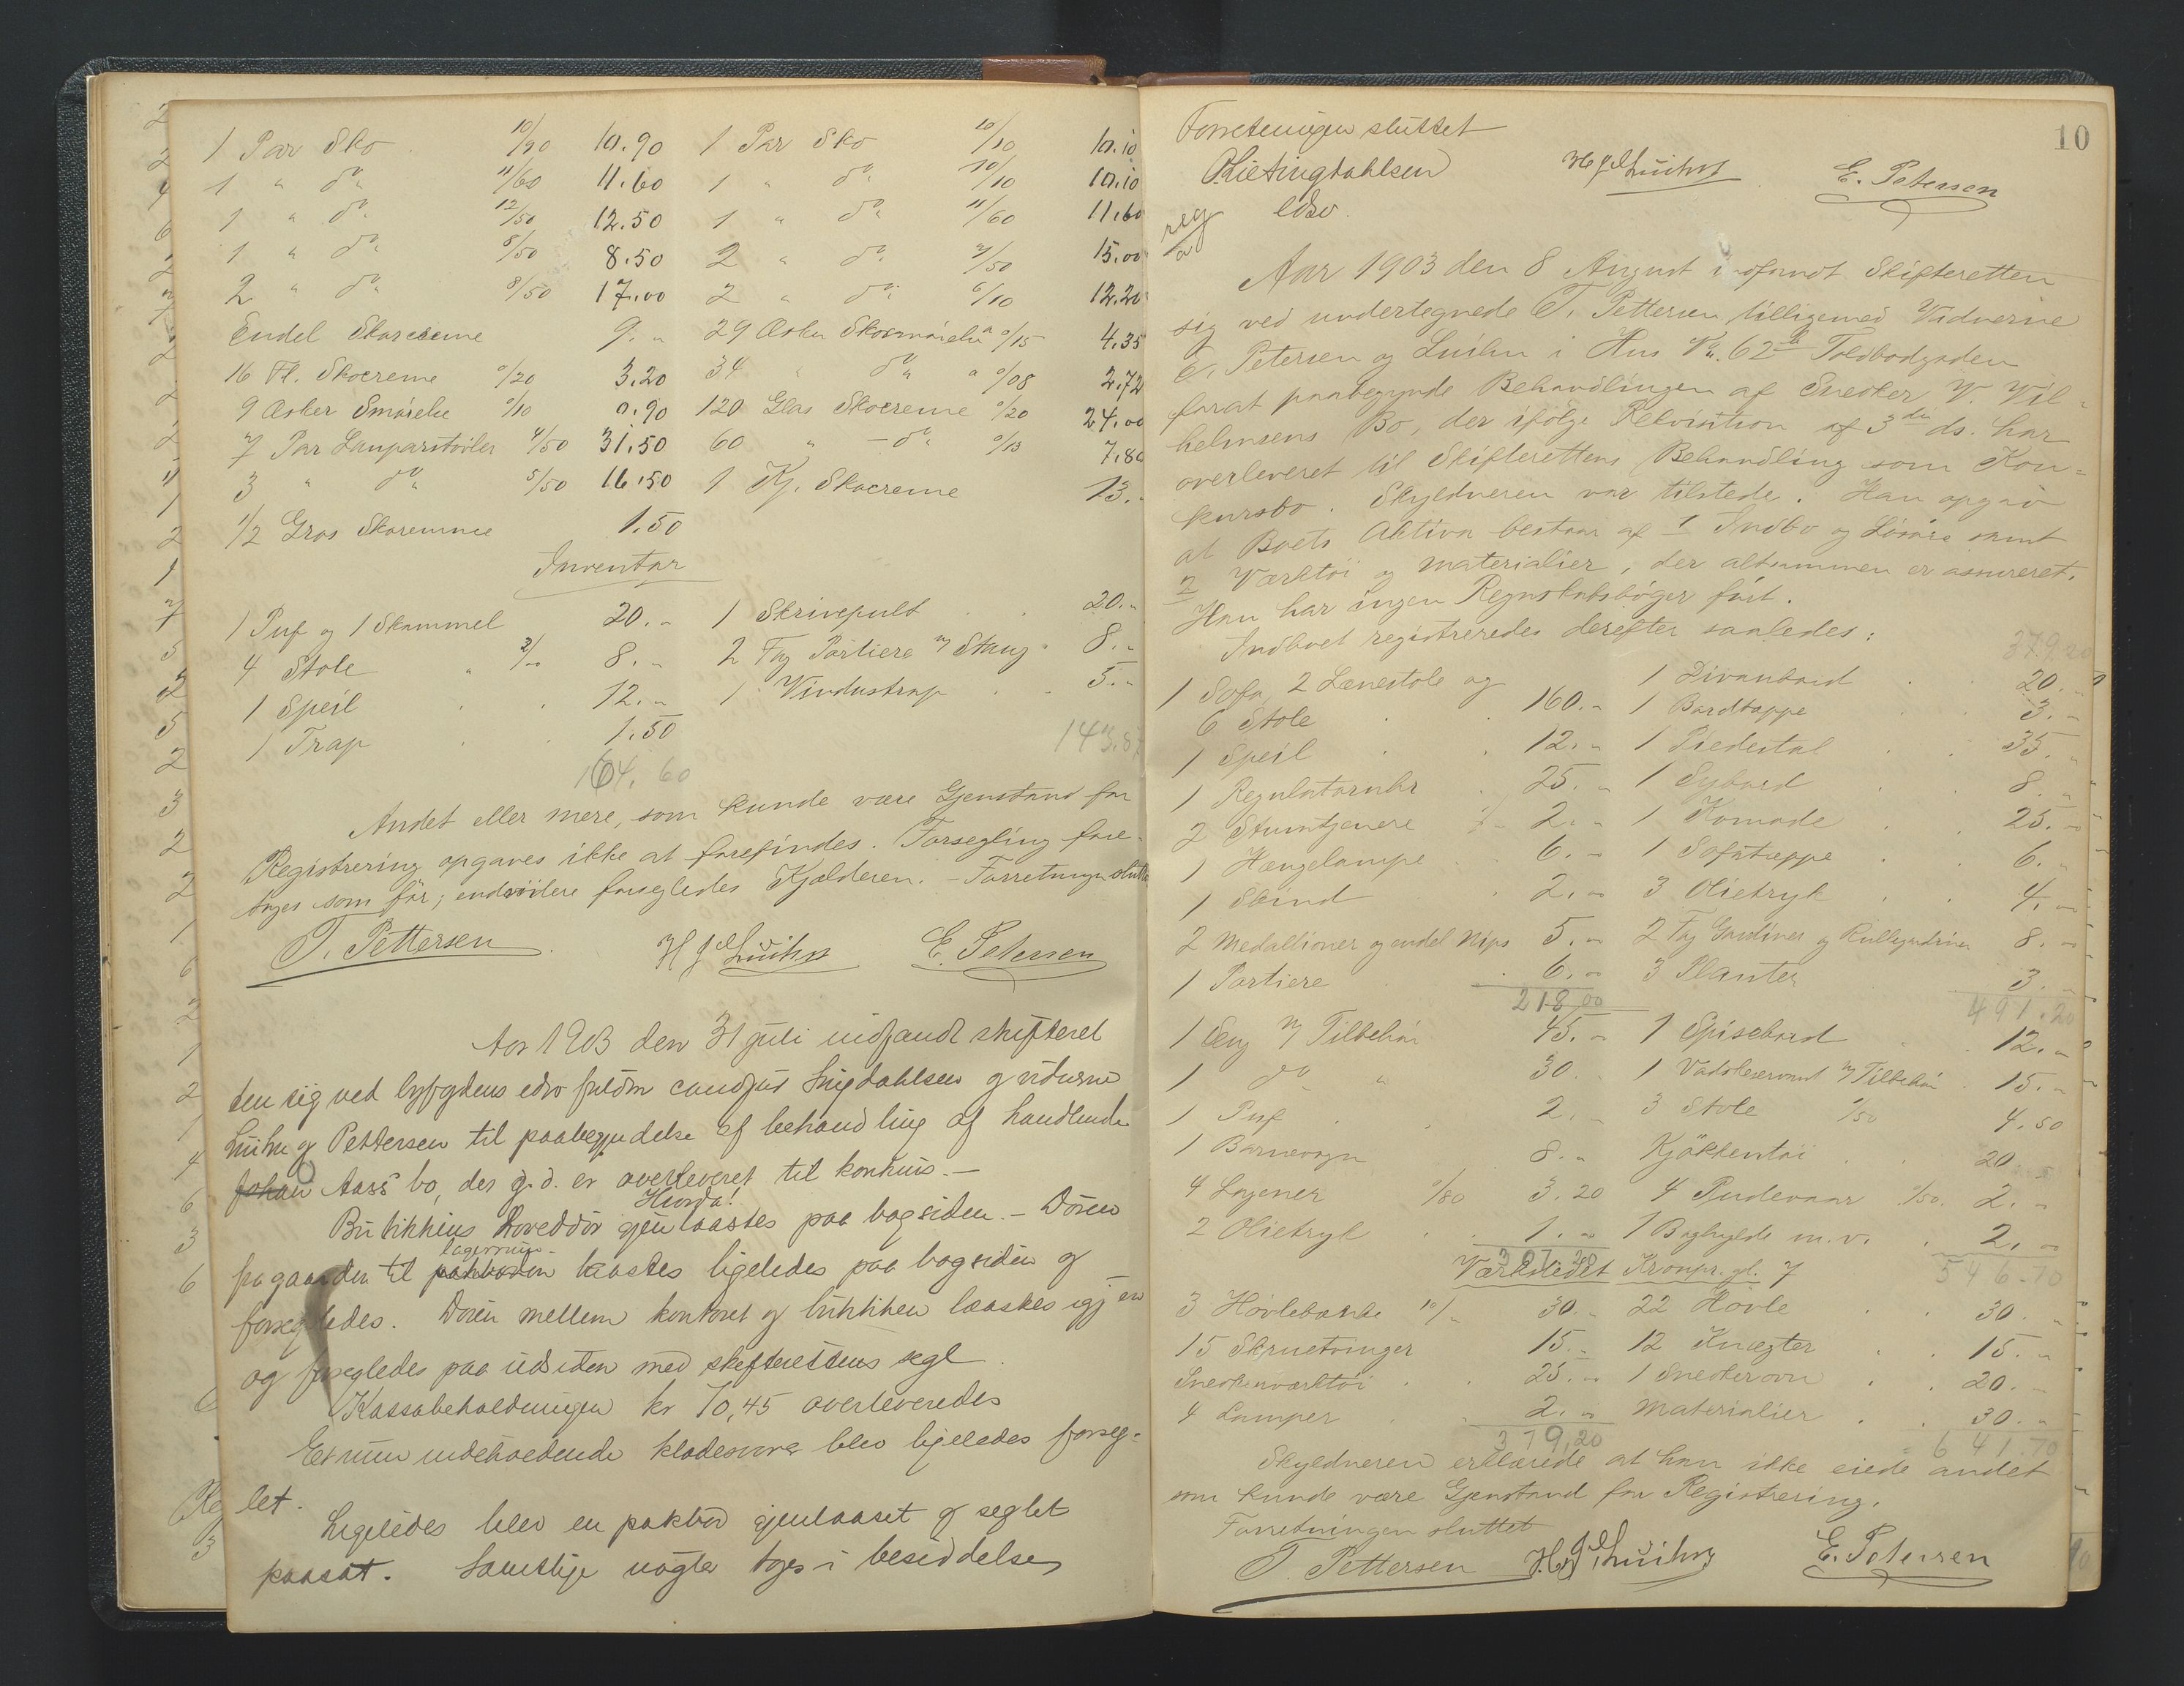 1 Par Sko 10/90 10.90 1 Par Sko 10/10 10.10
1 " do " 11/60 11.60 1 " do " 10/10 10.10
1 " do " 12/50 12.50 1 " do " 11/60 11.60
1 " do " 8/50 8.50 2 " do " 7/50 15.00
2 " do " 8/50 17.00 2 " do " 6/10 12.20
Endel Skocreme 9. " 29 Æsker Skosmørelse a 0/15 4.35
16 Fl. Skocreme 0/20 3.20 34 " do " a 0/08 2.72
9 Æsker Smørelse 0/10 0.90 120 Glas Skocreme 0/20 24.00
7 Par Lauparstøvler 4/50 31.50 60 " - do " 0/13 7.80
3 " do " 5/50 16.50 1 Kj. Skocreme 13. "
1/2 Gros Skoremme 1.50
Inventar
1 Puf og 1 Skammel 20. " 1 Skrivepult 20. "
4 Stole " 2/" 8. " 2 Fag Portiere m/ Stang 8. "
1 Speil 12. " 1 Vindustrap 5. "
1 Trap 1.50
164.60 143.87
Andet eller mere, som kunde være Gjenstand for
Registrering opgaves ikke at forefindes. Forsegling fore-
toges som før; endvidere forsegledes Kjælderen. - Forretningen sluttet
T. Pettersen H J Luihn E. Petersen
Aar 1903 den 31 juli indfandt skifteret
ten sig ved byfogdens edsv fuldm cand jur Lingdahlsen og vidnerne
Luihn og Pettersen til paabegyndelse af behandling af handlende
Johan Aass' bo, der g.d. er overleveret til konkurs. -
Hvorda!
Butikkens hoveddør gjenlaastes paa bagsiden. - Døren
lagerrum
fra gaarden til pakboden laastes ligeledes paa bagsiden og
forsegledes. Døren mellem kontoret og butikken laastes igjen
og forsegledes paa udsiden med skifterettens segl.
Kassabeholdningen kr 70,45 overleveredes
Et rum indeholdende kladesvare blev ligeledes forseg-
let.
Ligeledes blev en pakbod gjenlaaset og seglet
paasat. Samtlige nøgler toges i besiddelse
10
Forretningen sluttet
Lingdahlsen H J Luihn E. Petersen
edsv.
reg
a
Aar 1903 den 8 August indfandt Skifteretten
sig ved undertegnede T. Pettersen tilligemed Vidnerne
E. Petersen og Luihn i Hus No. 62 b Toldbodgaden
forat paabegynde Behandlingen af Snedker V. Vil-
helmsens Bo, der ifølge Rekvisition af 3die ds. har
overleveret til Skifterettens Behandling som Kon-
kursbo. Skyldneren var tilstede. Han opgav
at Boets Aktiva bestaar af 1 Indbo og Løsøre samt
2 Værktøi og Materialier, der altsammen er assureret.
Han har ingen Regnskabsbøger ført.
Indboet registreredes derefter saaledes:
379.20
1 Sofa, 2 Lænestole og 1 Divanbord 20. "
6 Stole 160. " 1 Bordtæppe 3. "
1 Speil 12. " 1 Piedestal 35. "
1 Regulatoruhr 25. " 1 Sybord 8. "
2 Stumtjenere 1/" 2. " 1 Komode 25. "
1 Hængelampe 6. " 1 Sofatæppe 6. "
1 Skind 2. " 3 Olietryk 4. "
2 Medallioner og endel Nips 5. " 2 Fag Gardiner og Rullegardiner 8. "
1 Portiere 6. " 3 Planter 3. "
218.00 491.20
1 Seng m/ Tilbehør 45. " 1 Spisebord 12. "
1 do " 30. " 1 Vadskeservant m/ Tilbehør 15. "
1 Puf 2. " 3 Stole 1/50 4.50
1 Barnevogn 8. " Kjøkkentøi 20
4 Lagener 0/80 3.20 4 Pudevaar 0/50 2. "
2 Olietryk 1. " 1 Boghylde m.v. 2. "
307.20 546.70
Værkstedet Kronpr. gt. 7
3 Høvlebænke 10/" 30. " 22 Høvle 30. "
15 Skruetvinger 15. " 12 Knægter 15. "
Snedkerværktøi 25. " 1 Snedkerovn 20. "
4 Lamper 2. " Materialier 30. "
379,20 641.70
Skyldneren erklærede at han ikke eiede andet
som kunde være Gjenstand for Registrering.
Forretningen sluttet
T. Pettersen H. J. Luihn E. Petersen